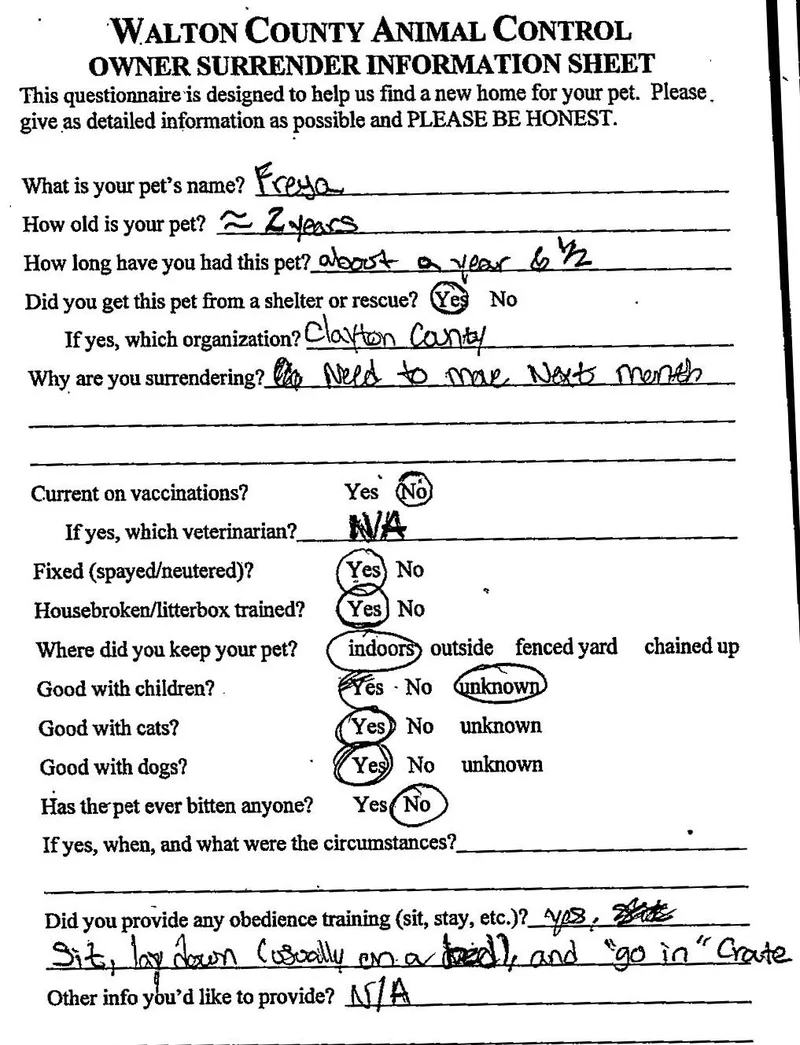 WALTON COUNTY ANIMAL CONTROL
OWNER SURRENDER INFORMATION SHEET
This questionnaire is designed to help us find a new home for your pet. Please
give as detailed information as possible and PLEASE BE HONEST.
What is your pet's name? Freya
How old is your pet? ≈ 2 years
How long have you had this pet? about a year & 1/2
Did you get this pet from a shelter or rescue? Yes No
If yes, which organization? Clayton County
Why are you surrendering? Need to move Next month
Current on vaccinations? Yes No
If yes, which veterinarian? N/A
Fixed (spayed/neutered)? Yes No
Housebroken/litterbox trained? Yes No
Where did you keep your pet? indoors outside fenced yard chained up
Good with children? Yes No unknown
Good with cats? Yes No unknown
Good with dogs? Yes No unknown
Has the pet ever bitten anyone? Yes No
If yes, when, and what were the circumstances?
Did you provide any obedience training (sit, stay, etc.)? yes,
Sit, lay down (usually on a bed), and "go in" Crate
Other info you'd like to provide? N/A